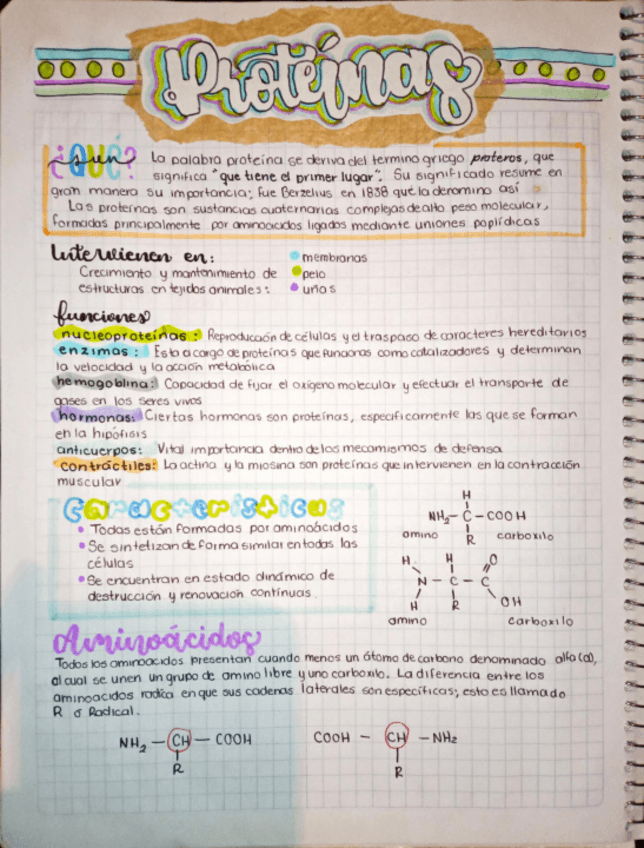 Proteínas
¿QUÉ? son La palabra proteína se deriva del termino griego proteros, que
significa "que tiene el primer lugar". Su significado resume en
gran manera su importancia; fue Berzelius en 1838 que la denomino así
Las proteínas son sustancias cuaternarias complejas de alto peso molecular,
formadas principalmente por aminoácidos ligados mediante uniones paplídicas
Intervienen en:
Crecimiento y mantenimiento de
estructuras en tejidos animales:
membranas
pelo
uñas
funciones
nucleoproteínas: Reproducción de células y el traspaso de caracteres hereditarios
enzimas: Esta a cargo de proteínas que funcionas como catalizadores y determinan
la velocidad y la acción metabólica
hemogoblina: Capacidad de fijar el oxígeno molecular y efectuar el transporte de
gases en los seres vivos
hormonas: Ciertas hormonas son proteínas, especificamente las que se forman
en la hipófisis
anticuerpos: Vital importancia dentro de los mecamismos de defensa
contráctiles: La actina y la miosina son proteínas que intervienen en la contracción
muscular
Características
Todas están formadas por aminoácidos
Se sintetizan de forma similar en todas las
células
Se encuentran en estado dinámico de
destrucción y renovación contínuas.
H
NH2 – C – COOH
amino R carboxilo
H H O
N – C – C
H R OH
amino carboxilo
Aminoácidos
Todos los aminoacidos presentan cuando menos un átomo de carbono denominado alfa (a),
al cual se unen un grupo de amino libre y uno carboxilo. La diferencia entre los
aminoacidos radica en que sus cadenas laterales son específicas; esto es llamado
R ó Radical.
NH2 – CH – COOH
R
COOH – CH – NH2
R